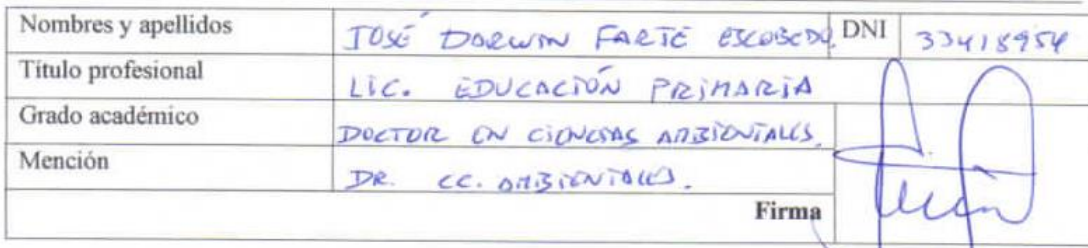 Nombres y apellidos JOSÉ DARWIN FARJE ESCOBEDO DNI 33418954
Título profesional LIC. EDUCACIÓN PRIMARIA
Grado académico DOCTOR EN CIENCIAS AMBIENTALES.
Mención DR. CC. AMBIENTALES.
Firma